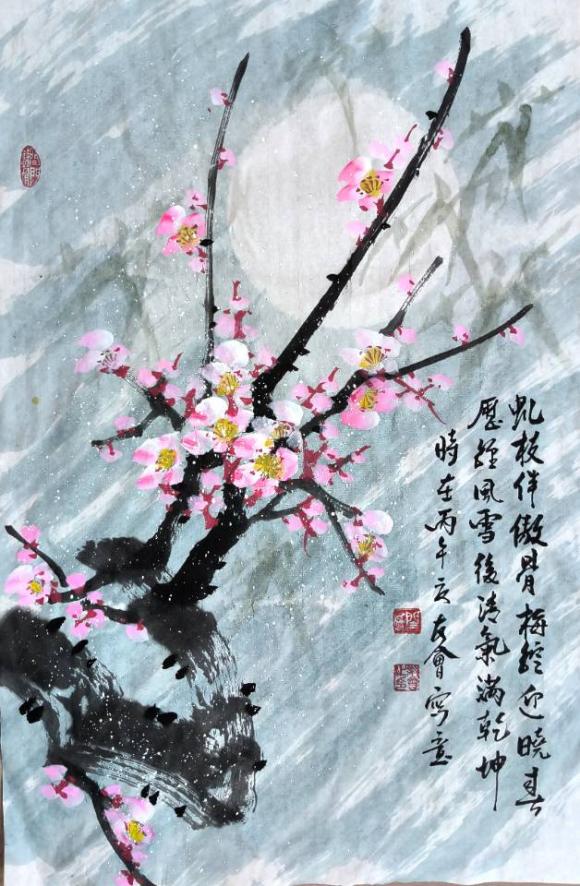 虬枝伴傲骨梅綻迎曉春
歷經風雪後清氣滿乾坤
時在丙午 友會寫意